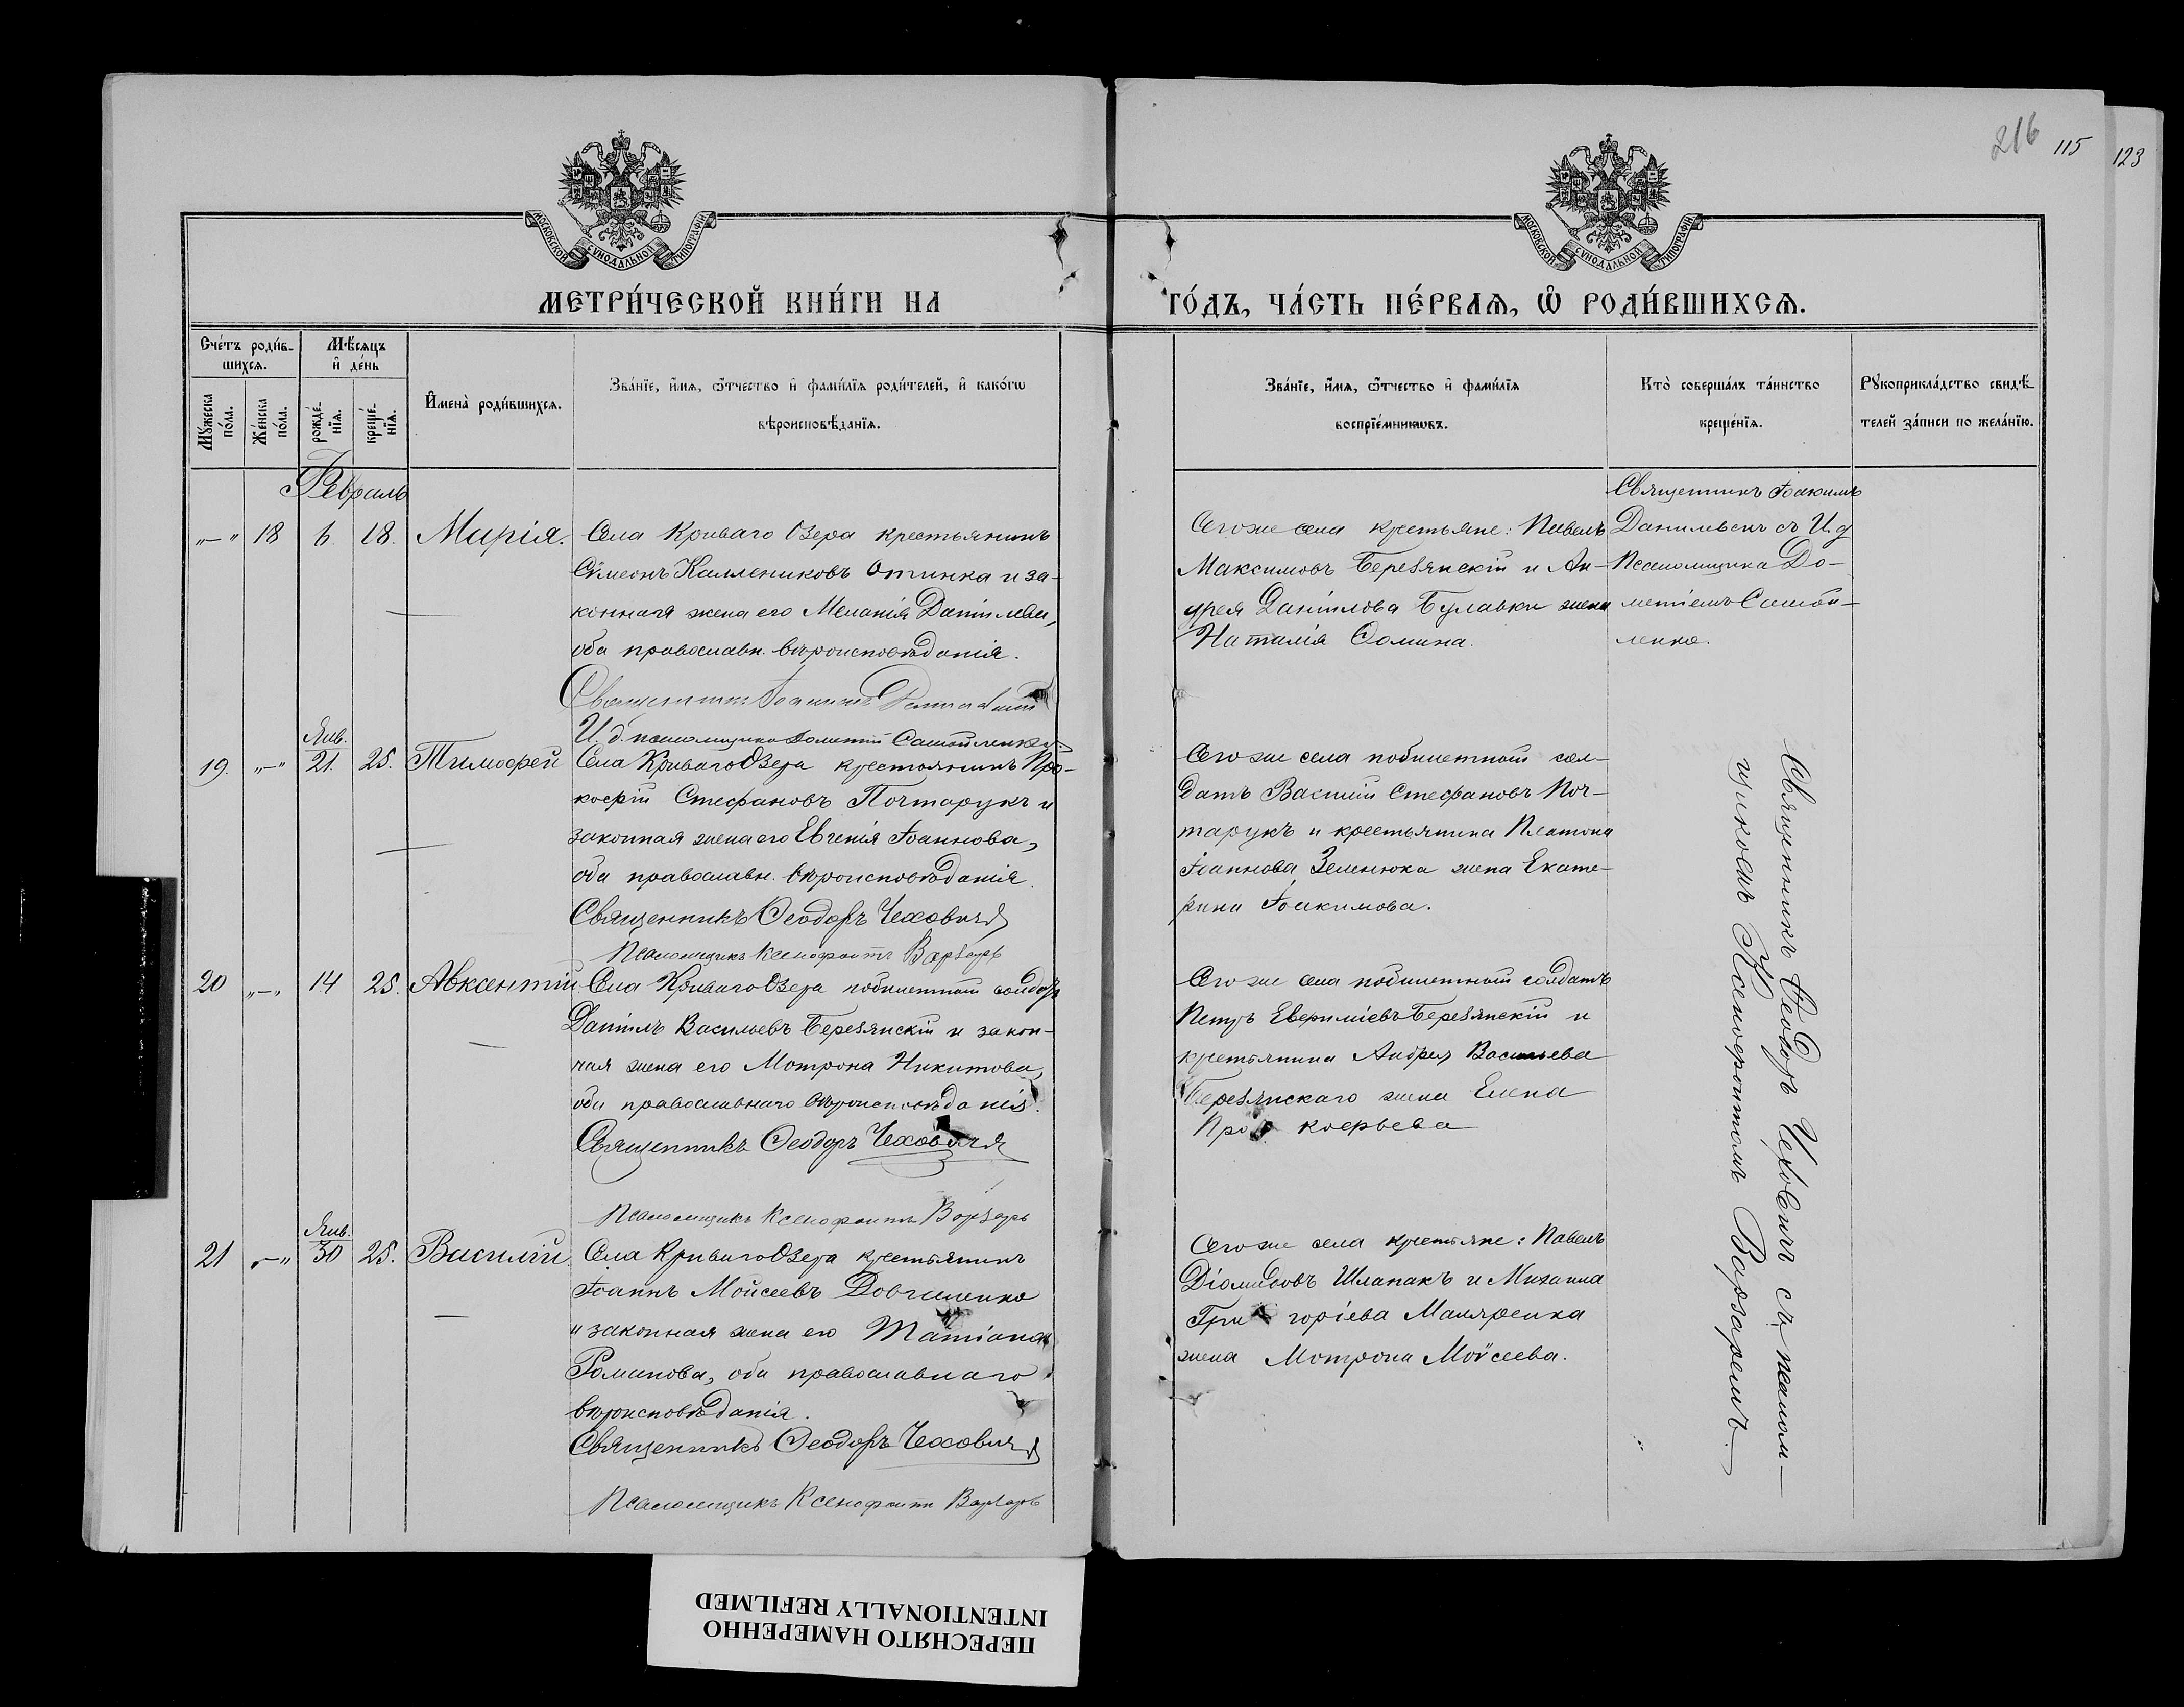 216 115 123
МОСКОВСКОЙ СѴНОДАЛЬНОЙ ТИПОГРАФІИ
МОСКОВСКОЙ СѴНОДАЛЬНОЙ ТИПОГРАФІИ
МЕТРИ́ЧЕСКОЙ КНИ́ГИ НА ГО́ДЪ, ЧА́СТЬ ПЕ́РВАѦ, Ѡ РОДИ́ВШИХСѦ.
Сче́тъ роди́в-
шихсѧ.
Мѣ́сѧцъ
и҆ де́нь
Мꙋ́жеска
по́ла.
Же́нска
по́ла.
рожде́-
нїѧ.
креще́-
нїѧ.
И҆мена̀ роди́вшихсѧ.
Зва́нїе, и҆́мѧ, ѻ҆́тчество и҆ фами́лїѧ роди́телей, и҆ како́гѡ
вѣроисповѣ́данїѧ.
Зва́нїе, и҆́мѧ, ѻ҆́тчество и҆ фами́лїѧ
воспрїе́мникѡвъ.
Кто̀ соверша́лъ та́инство
креще́нїѧ.
Рꙋкоприкла́дство свидѣ́-
телей за́писи по жела́нїю.
Февраль
"—" 18 6. 18. Марія.
Села Криваго Озера крестьянинъ
Сѵмеонъ Каллениковъ Отинка и за-
конная жена его Меланія Даніилова,
оба православн. вѣроисповѣданія.
Священникъ Іоакимъ
И. д. псаломщика Дометій Самойленко
Тогоже села крестьяне: Павелъ
Максимовъ Березянскій и Ан-
дрея Даніилова Булавки жена
Наталія Ѳомина.
Священникъ Іоакимъ
съ И. д
Псаломщика До-
метіемъ Самой-
ленко.
19. "—" Янв. 21. 25. Тимоѳей
Села Криваго Озера крестьянинъ Про-
кофій Стефановъ Почтарукъ и
законная жена его Евгенія Іоаннова,
оба православн. вѣроисповѣданія.
Священникъ Ѳеодоръ Чеховичъ
Псаломщикъ Ксенофонтъ Варзарь
Тогоже села побилетный сол-
датъ Василій Стефановъ Поч-
тарукъ и крестьянина Платона
Іоаннова Зеленюка жена Екате-
рина Іоакимова.
20 "—" 14 25. Авксентій
Села Криваго Озера побилетный солдатъ
Даніилъ Васильевъ Березянскій и закон-
ная жена его Мотрона Никитова,
оба православнаго вѣроисповѣданія.
Священникъ Ѳеодоръ Чеховичъ
Псаломщикъ Ксенофонтъ Варзарь
Тогоже села побилетный солдатъ
Петръ Евфиміевъ Березянскій и
крестьянина Андрея Васильева
Березянскаго жена Елена
Прокофьева
21 "—" Янв. 30 25. Василій
Села Криваго Озера крестьянинъ
Іоаннъ Мойсеевъ Довгиленко
и законная жена его Татіана
Романова, оба православнаго
вѣроисповѣданія.
Священникъ Ѳеодоръ Чеховичъ
Псаломщикъ Ксенофонтъ Варзарь
Тогоже села крестьяне: Павелъ
Діомидовъ Шлапакъ и Михаила
Григоріева Маляренка
жена Мотрона Мойсеева.
Священникъ Ѳеодоръ Чеховичъ съ псалом-
щикомъ Ксенофонтомъ Варзаремъ.
ПЕРЕСНЯТО НАМЕРЕННО
INTENTIONALLY REFILMED